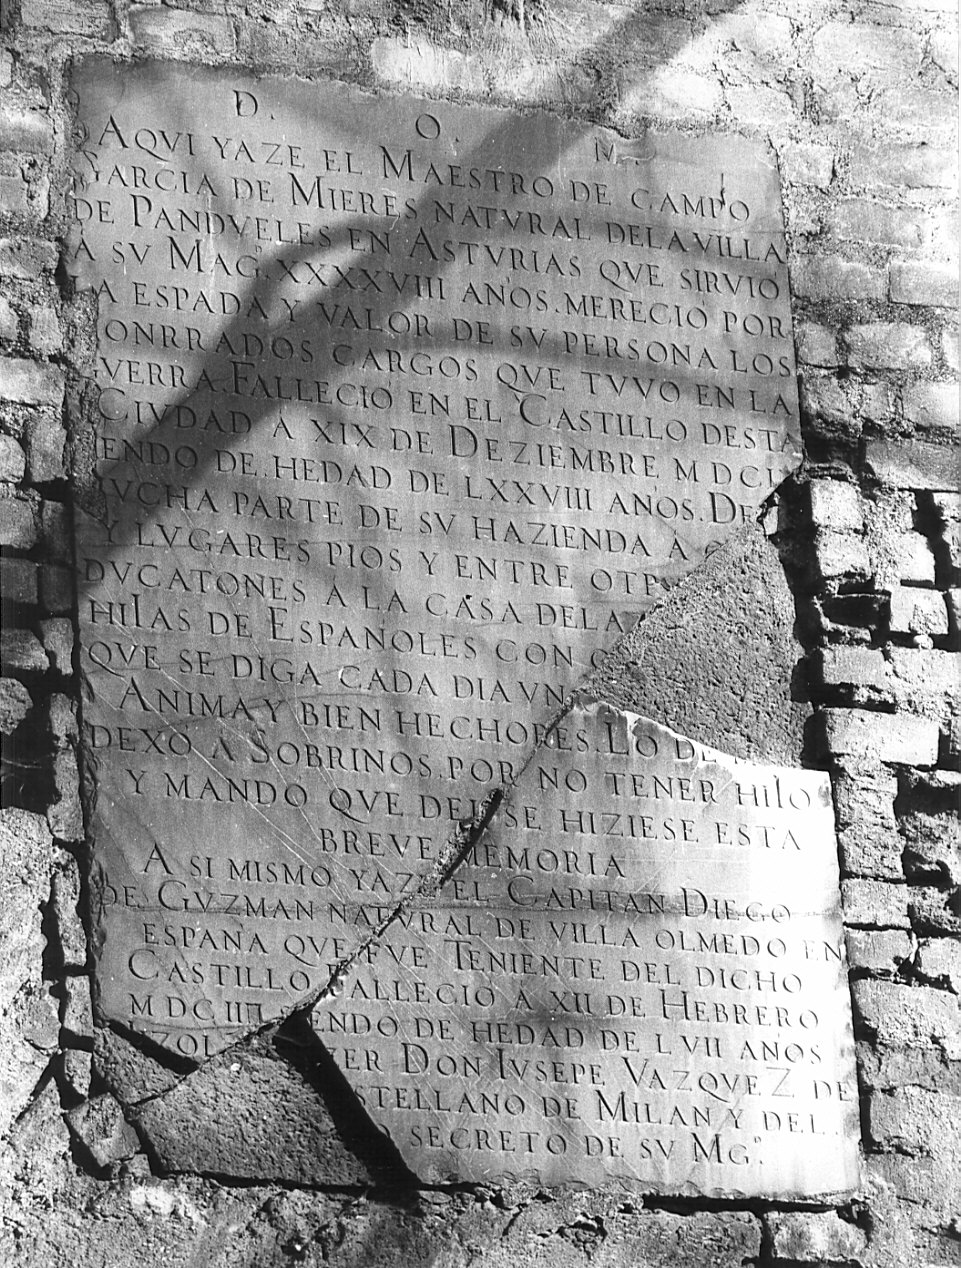 D. O. M
AQVI YAZE EL MAESTRO DE CAMPO
GARCIA DE MIERES NATVRAL DELA VILLA
DE PANDVELES EN ASTVRIAS QVE SIRVIO
A SV MAG.D XXXXVIII AÑOS. MERECIO POR
LA ESPADA Y VALOR DE SV PERSONA LOS
ONRRADOS CARGOS QVE TVVO EN LA
GVERRA. FALLECIO EN EL CASTILLO DESTA
CIVDAD A XIX DE DEZIEMBRE M DCI
ENDO DE HEDAD DE LXXVIII AÑOS. D
MVCHA PARTE DE SV HAZIENDA A
Y LVGARES PIOS Y ENTRE OTR
DVCATONES A LA CASA DELA
HIIAS DE ESPAÑOLES CON
QVE SE DIGA CADA DIA VN
ANIMA Y BIEN HECHORES. LO DE
DEXO A SOBRINOS POR NO TENER HIIO
Y MANDO QVE DEL SE HIZIESE ESTA
BREVE MEMORIA
A SI MISMO YAZE EL CAPITAN DIEGO
DE GVZMAN NATVRAL DE VILLA OLMEDO EN
ESPAÑA QVE FVE TENIENTE DEL DICHO
CASTILLO FALLECIO A XII DE HEBRERO
M DCIII ENDO DE HEDAD DE LVII AÑOS
IZOL ZER DON IVSEPE VAZQVEZ DE
STELLANO MILAN Y DEL
O SECRETO DE SV MG.